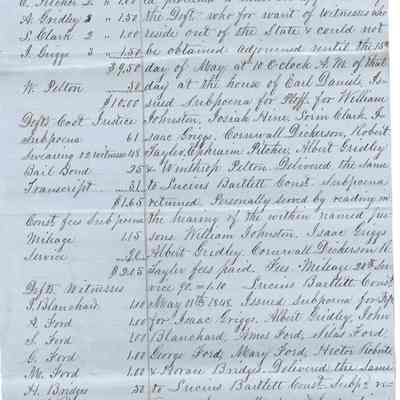 E. Pitcher 2 " 1.00
A. Gridley 3 " 1.50 the Deft. who for want of witnesses who
S. Clark 2 " 1.00 reside out of the State & could not
I. Griggs 3 " 1.50 be obtained adjourned until the 15th
$9.50 day of May at 10 O Clock A.M. of that
W. Pelton .50 day at the house of Earl Daniels. Is-
$10.00 sued Subpoena for Plff. for William
Defts Cost Justice Johnston, Josiah Hine, Lorin Clark, I-
Subpoena 61 saac Griggs, Cornwall Dickerson, Robert
Swearing 12 witnesses Taylor, Ephraim Pitcher, Albert Gridley
Bail Bond 25 & Winthrop Pelton. Delivered the same
Transcript to Lucius Bartlett Const. Subpoena
$1.65 returned. Personally served by reading in
Const fees Subpoena the hearing of the within named per
Mileage 1.15 sons William Johnston, Isaac Griggs
Service .90 Albert Gridley, Cornwall Dickerson R.
$2.05 Taylor fees paid. Fees. Mileage Ser
Defts Witnesses vice Lucius Bartlett Const
J. Blanchard 1.00 May 11th 1848. Issued Subpoena for Dft
A. Ford 1.00 for Isaac Griggs, Albert Gridley, John
S. Ford 1.00 Blanchard, Amos Ford, Silas Ford,
G. Ford 1.00 George Ford, Mary Ford, Hector Roberts
M. Ford 1.00 & Horace Bridges. Delivered the same
H. Bridges .50 to Lucius Bartlett Const. Subp. re-